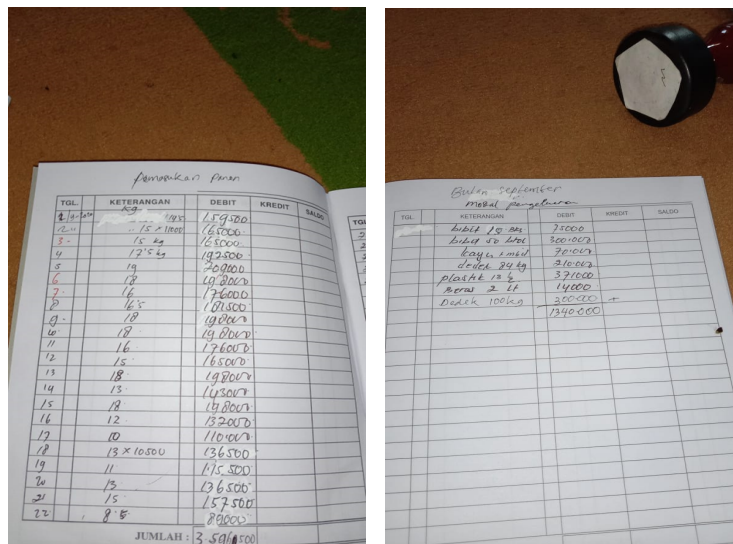 Pemasukan Panen
TGL. KETERANGAN DEBIT KREDIT SALDO
Kg
1 159500
2 15 x 11000 165000
3 15 kg 165000
4 17'5 kg 192500
5 19 209000
6 18 198000
7 16 176000
8 16'5 181500
9 18 198000
10 18 198000
11 16 176000
12 15 165000
13 18 198000
14 13 143000
15 18 198000
16 12 132000
17 10 110.000
18 13 x 10500 136500
19 11 115.500
20 13 136500
21 15 157500
22 8.5 89000
JUMLAH : 3.591.500
Bulan September
modal pengeluaran
TGL. KETERANGAN DEBIT KREDIT SALDO
bibit 75000
bibit 50 300.000
kayu 1 mbil 70.000
dedek 84 kg 210.000
plastik 371000
Beras 2 Lt 14000
Dedek 100 kg 300.000 +
1340.000